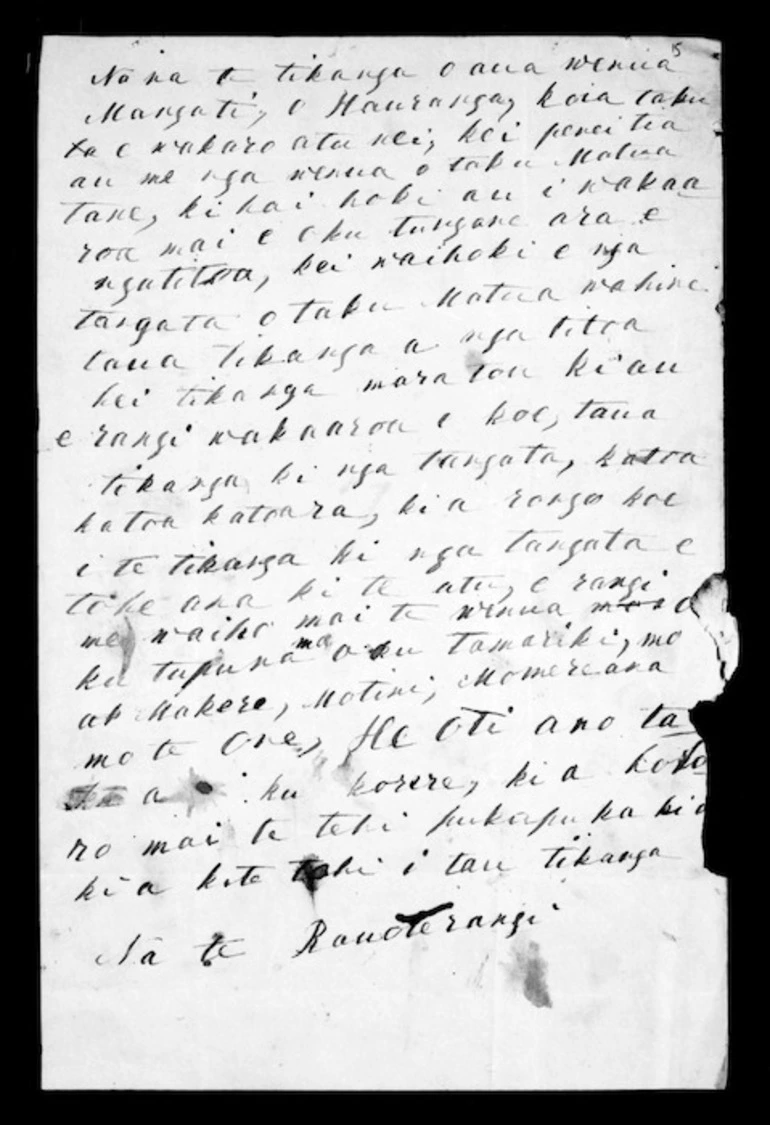 5
Nana te tikanga o aua wenua
Mangati, o Hauranga, koia taku
ta e wakaro atu nei, kei penei tia
au me nga wenua o taku Matua
tane, ki hai hoki au i wakaa
roa mai e oku tungane ara e
ngatitoa, kei waihoki e nga
tangata o taku Matua wahine
taua tikanga a nga titoa
hei tikanga mara tou ki au
e rangi wakaaroa e koe, taua
tikanga ki nga tangata, katoa
katoa katoara, ki a rongo koe
i te tikanga ki nga tangata e
tohe ana ki te utu, e rangi
me waiho mai te wenua
ku tupuna ma oku tamariki, mo
Makere, Motini, Momereana
mo te One, He Oti ano ta
a ku korere, ki a horo
ro mai te tehi pukapuka ki a
ki a kite tehi i tau tikanga
Na te Rauoterangi